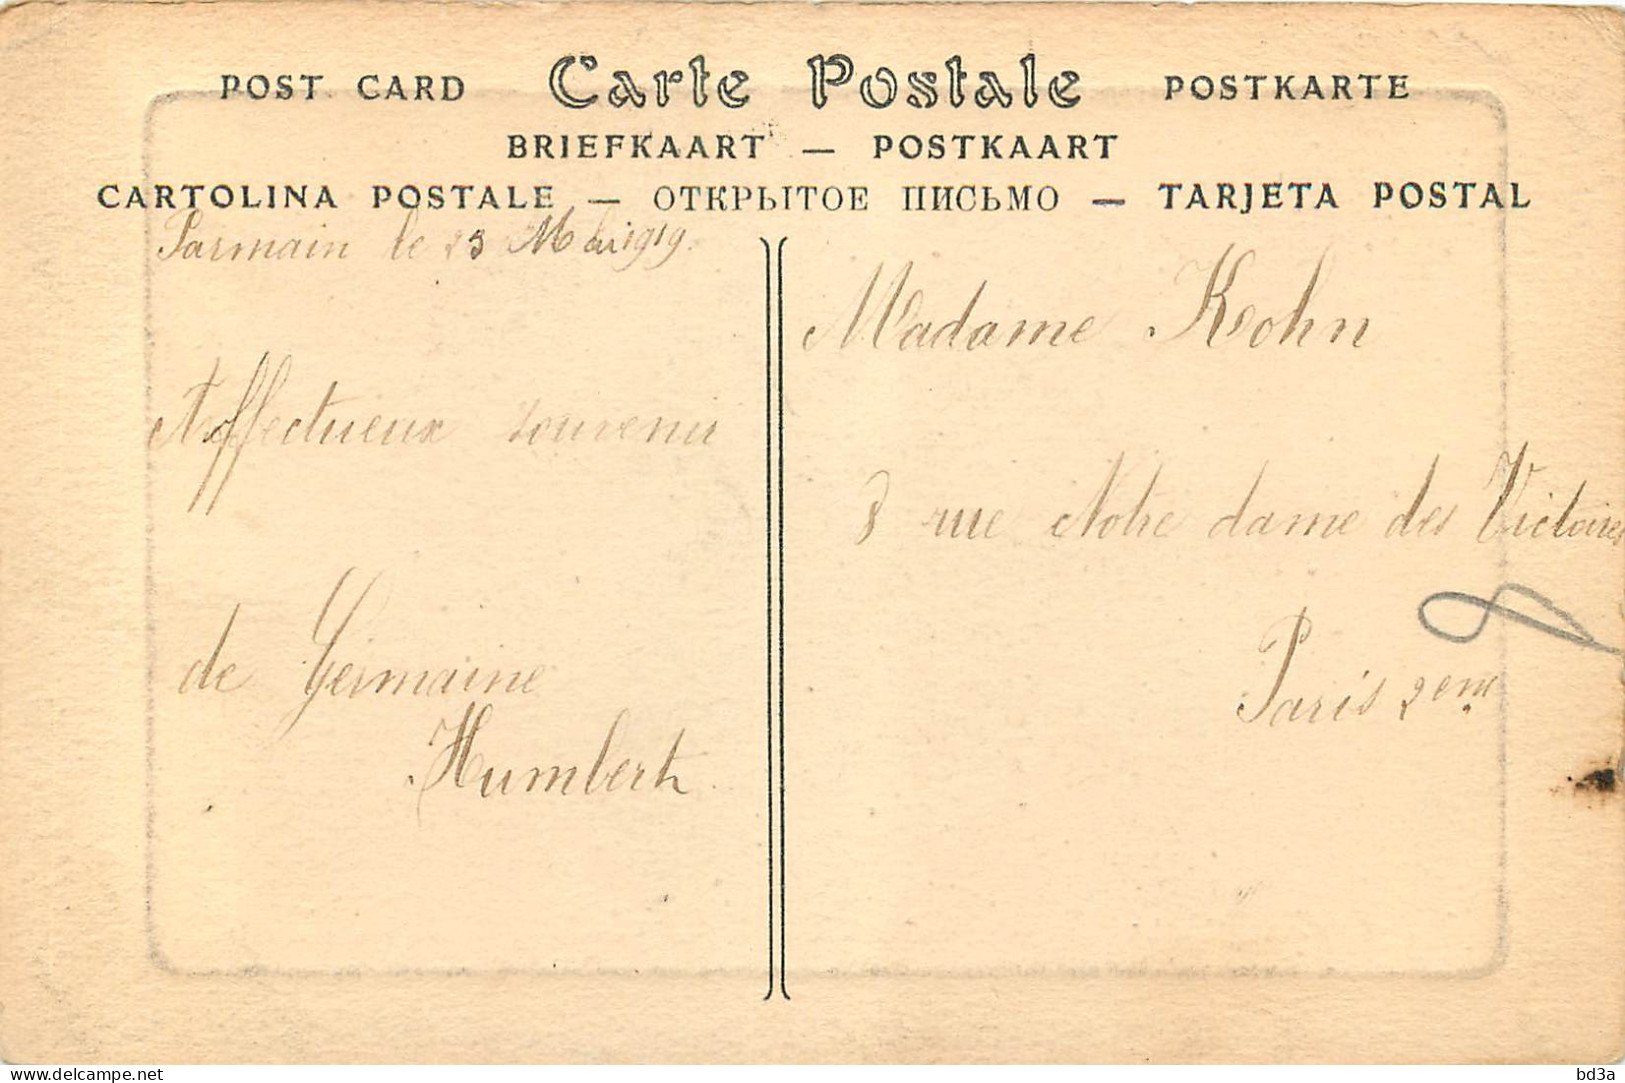 POST CARD Carte Postale POSTKARTE
BRIEFKAART — POSTKAART
CARTOLINA POSTALE — ОТКРЫТОЕ ПИСЬМО — TARJETA POSTAL
Parmain le 23 Mai 1919.
Affectueux souvenir
de Germaine
Humbert
Madame Kohn
8 rue Notre dame des Victoires
Paris 2eme
delcampe.net
bd3a